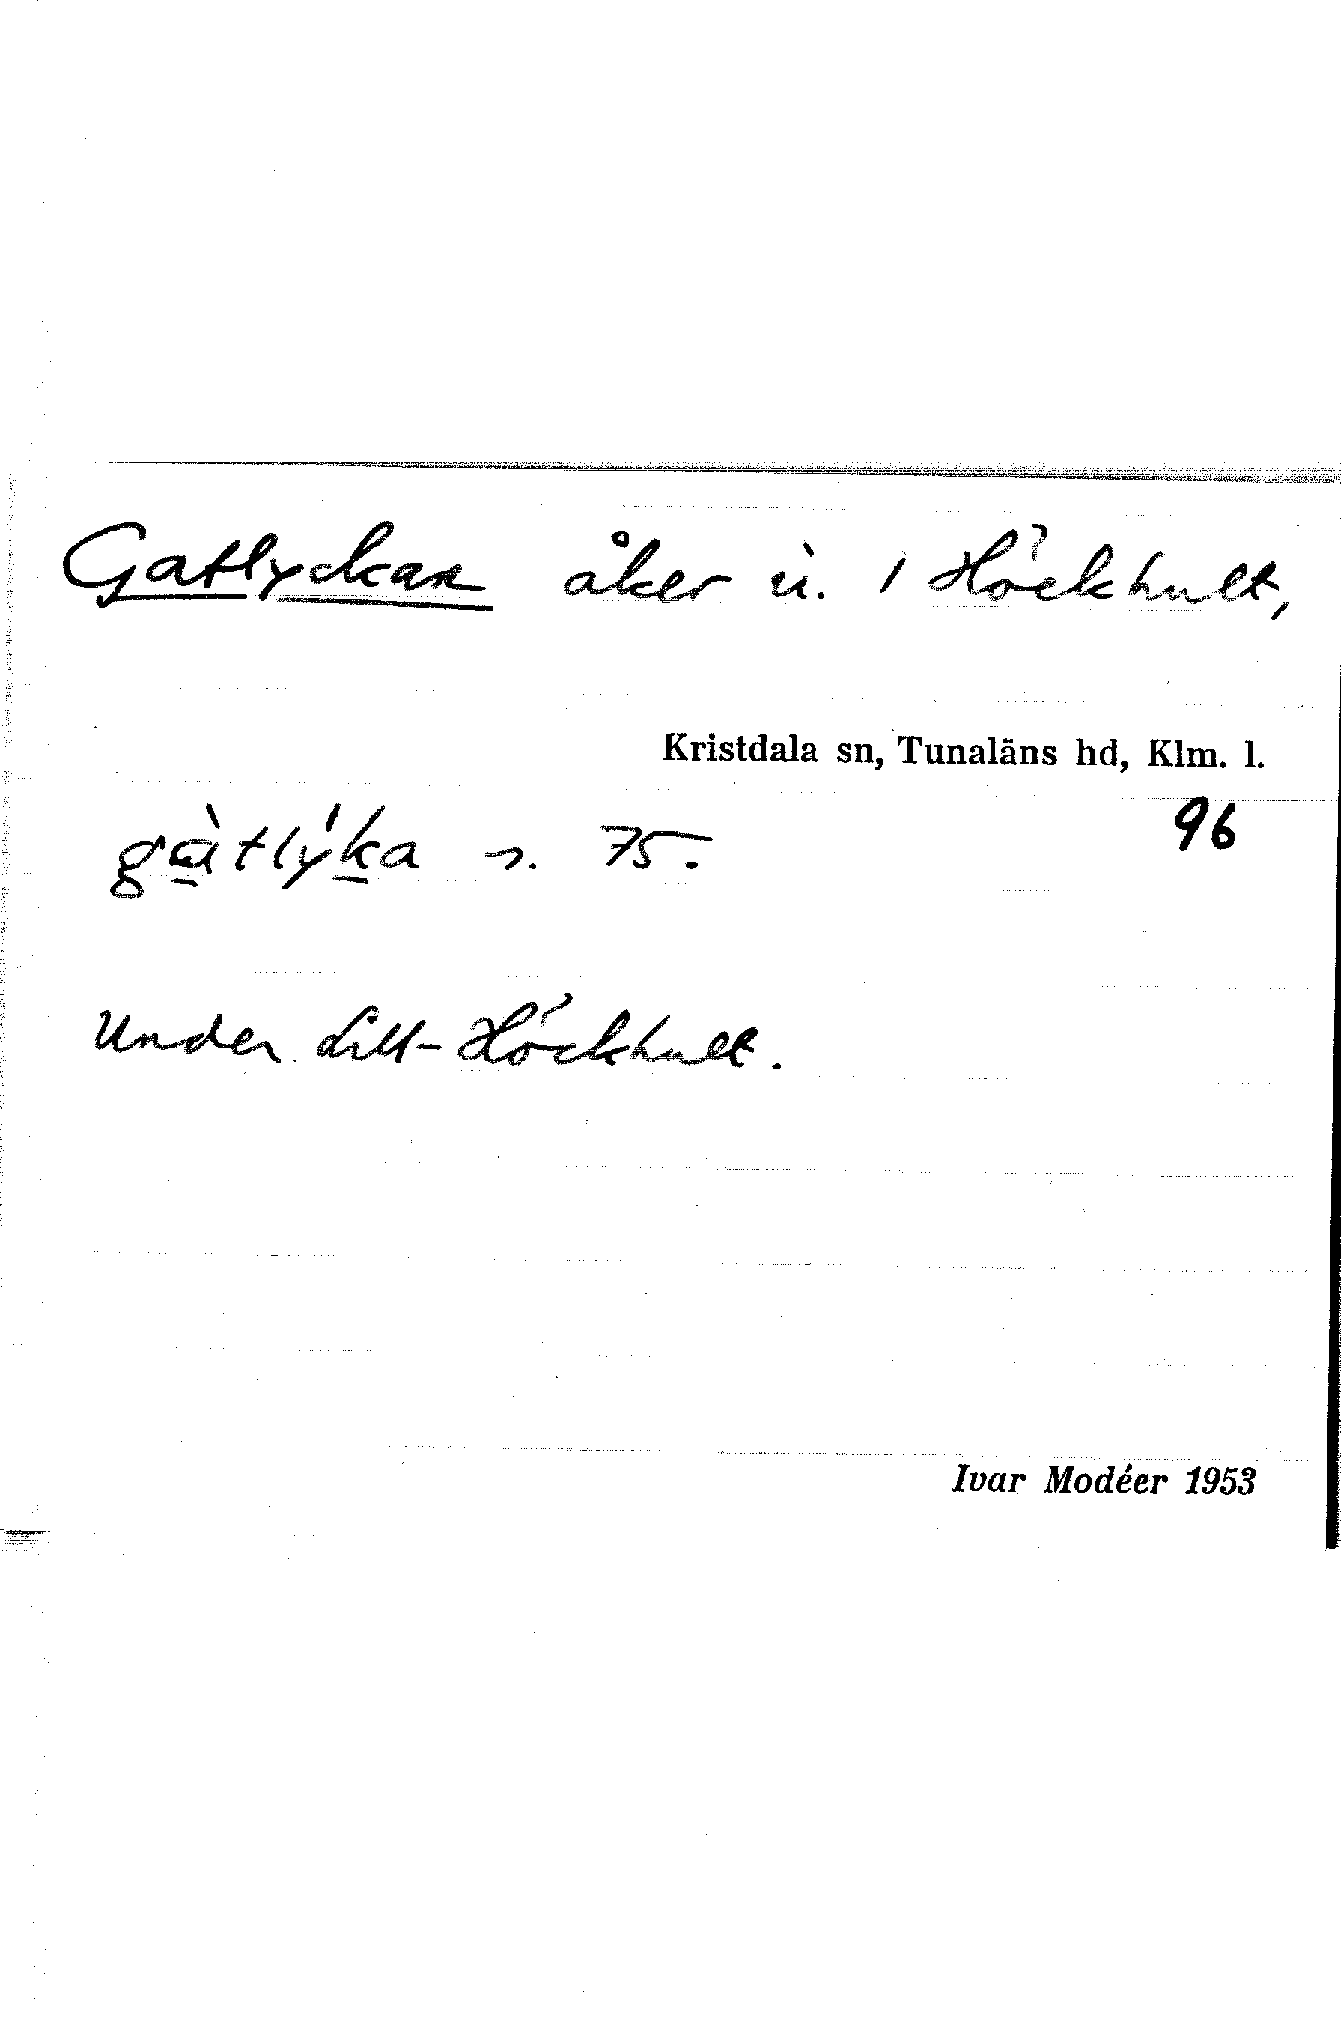 Gatlyckan åker ù. 1 Höckhult,
Kristdala sn, Tunaläns hd, Klm. l.
96
gàtlýka s. 75.
Under Lill-Höckhult.
Ivar Modéer 1953